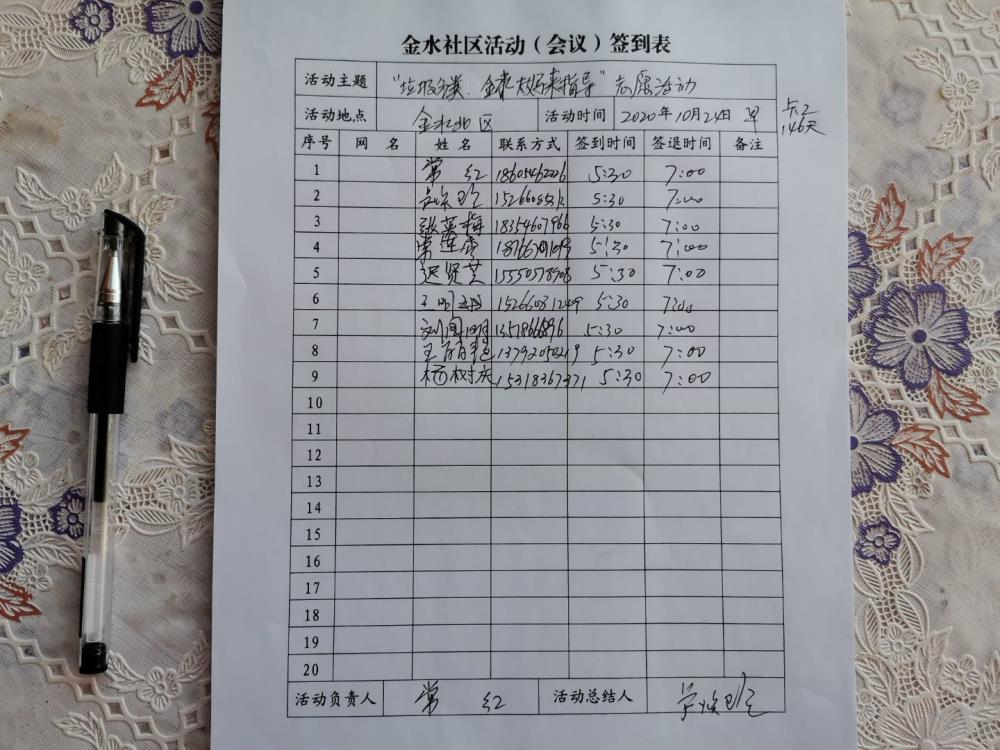 金水社区活动（会议）签到表
活动主题 "垃圾分类、金水大妈来指导"志愿活动
活动地点 金水社区 活动时间 2020年10月24日 早
146天
序号 网 名 姓 名 联系方式 签到时间 签退时间 备注
1 常 红 18605462226 5:30 7:00
2 5:30 7:00
3 张英梅 18354607966 5:30 7:00
4 常连雪 5:30 7:00
5 迟贤芝 15550578908 5:30 7:00
6 15266031249 5:30 7:00
7 5:30 7:00
8 5:30 7:00
9 杨树庆 15318367371 5:30 7:00
10
11
12
13
14
15
16
17
18
19
20
活动负责人 常 红 活动总结人